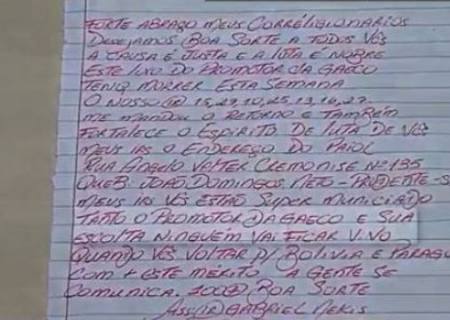 FORTE ABRAÇO MEUS CORRÉLIGIONARIOS
DESEJAMOS BOA SORTE A TODOS VCS
A CAUSA É JUSTA E A LUTA É NOBRE
ESTE LIXO DO PROMOTOR DA GAECO
TENQ MORRER ESTA SEMANA
O NOSSO @ 15,29,10,25,13,16,27
ME MANDOU O RETORNO E TAMBÉM
FORTALECE O ESPIRITO DE LUTA DE VCS
MEUS IRS O ENDEREÇO DO PAIOL
RUA ANGELO VOLTER CREMONISE Nº 135
QUEB: JOÃO DOMINGOS NETO - PR@DENTE - S
MEUS IRS VCS ESTÃO SUPER MUNICIADO
TANTO O PROMOTOR DA GAECO E SUA
ESCOLTA NINGUÉM VAI FICAR VIVO
QUANDO VCS VOLTAR P/ BOLIVIA E PARAGU
COM + ESTE MÉRITO A GENTE SE
COMUNICA. 100@ BOA SORTE
ASS: GABRIEL NEKIS